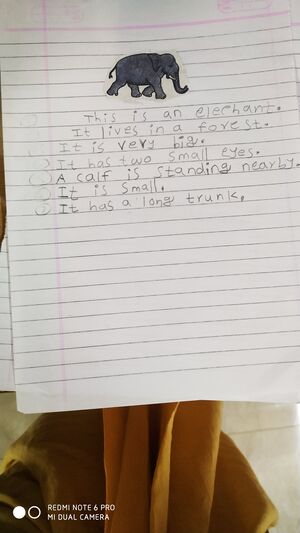 This is an elephant.
It lives in a forest.
It is very big.
It has two small eyes.
A calf is standing nearby.
It is small.
It has a long trunk.
REDMI NOTE 6 PRO
MI DUAL CAMERA